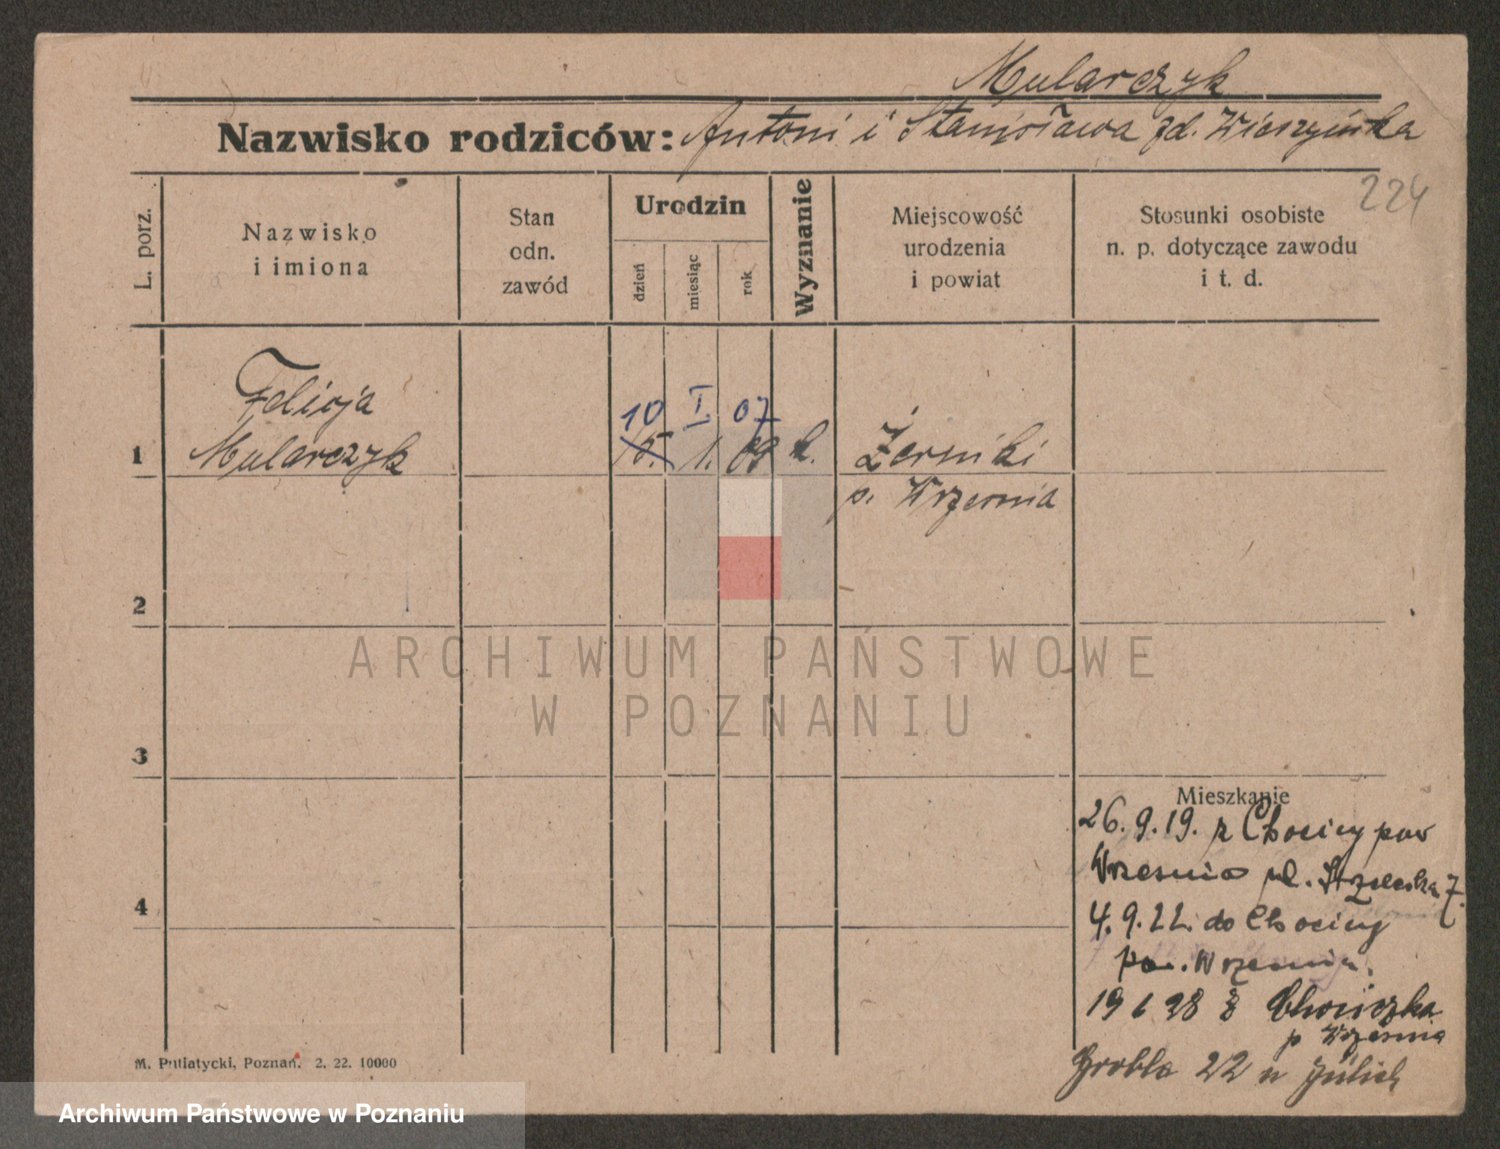 Mularczyk
Nazwisko rodziców: Antoni i Stanisława zd.
224
L. porz.
Nazwisko
i imiona
Stan
odn.
zawód
Urodzin
dzień
miesiąc
rok
Wyznanie
Miejscowość
urodzenia
i powiat
Stosunki osobiste
n. p. dotyczące zawodu
i t. d.
10 I. 07
Felicja
Mularczyk
1
15. 1. 09 k.
Żerniki
p. Września
2
3
4
Mieszkanie
26. 9. 19. z Chocicy pow
Września ul. Strzelecka 7.
4. 9. 22. do Chocicy
pow. Września.
19 6 28 z Chociczka
p Września
Grobla 22 u
M. Putiatycki, Poznań. 2. 22. 10000
ARCHIWUM PAŃSTWOWE
W POZNANIU
Archiwum Państwowe w Poznaniu